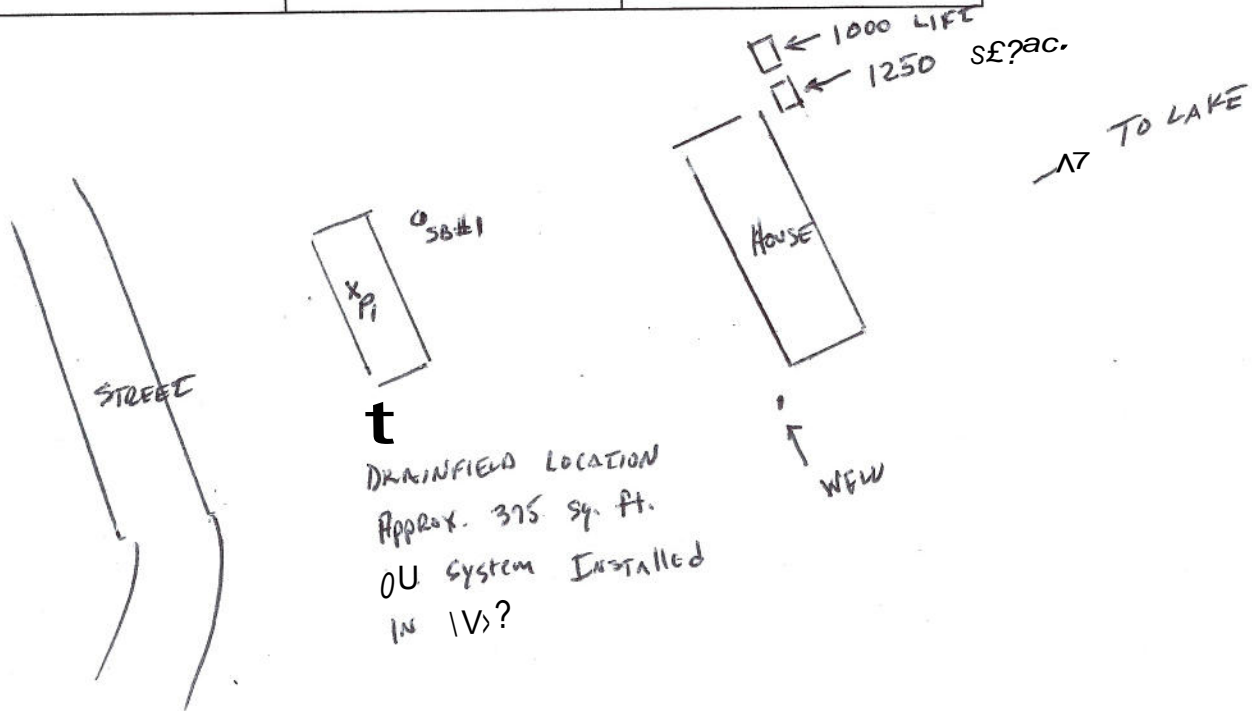 1000 LIFT
1250 s£?ac.
TO LAKE
SB#1
HOUSE
P1
STREET
t
DRAINFIELD LOCATION
Approx. 375 sq. ft.
0U system Installed
IN \V>?
WELL